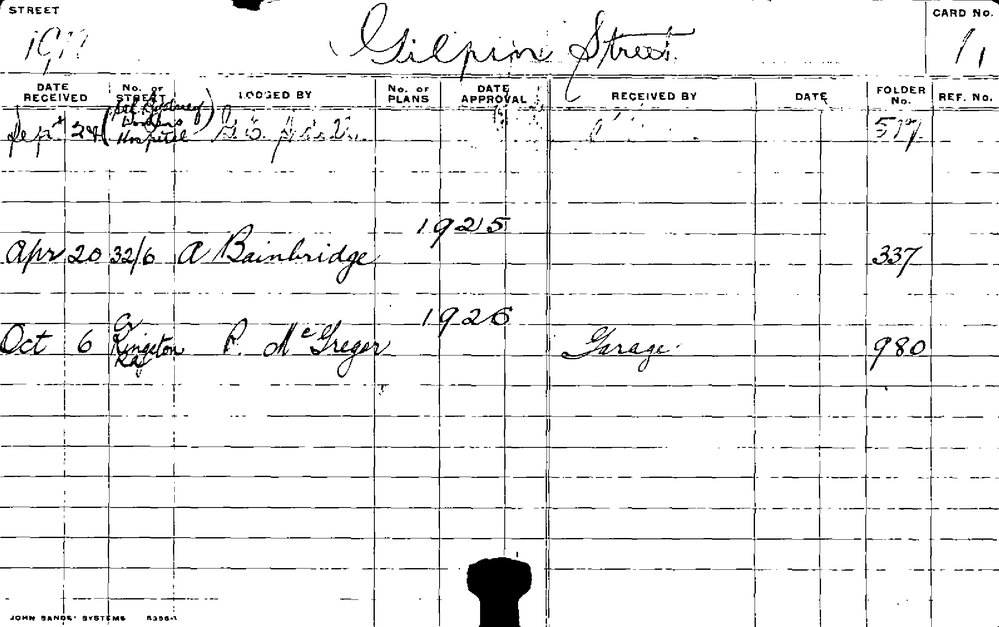 STREET
Gilpin Street.
CARD No.
DATE RECEIVED No. OF STREET LODGED BY No. OF PLANS DATE APPROVAL RECEIVED BY DATE FOLDER No. REF. No.
Sept 24 Hospital
1925
Apr 20 32/6 A Bainbridge 337
1926
Oct 6 Cr Kingston Rd P. McGregor Garage. 980
JOHN SANDS' SYSTEMS